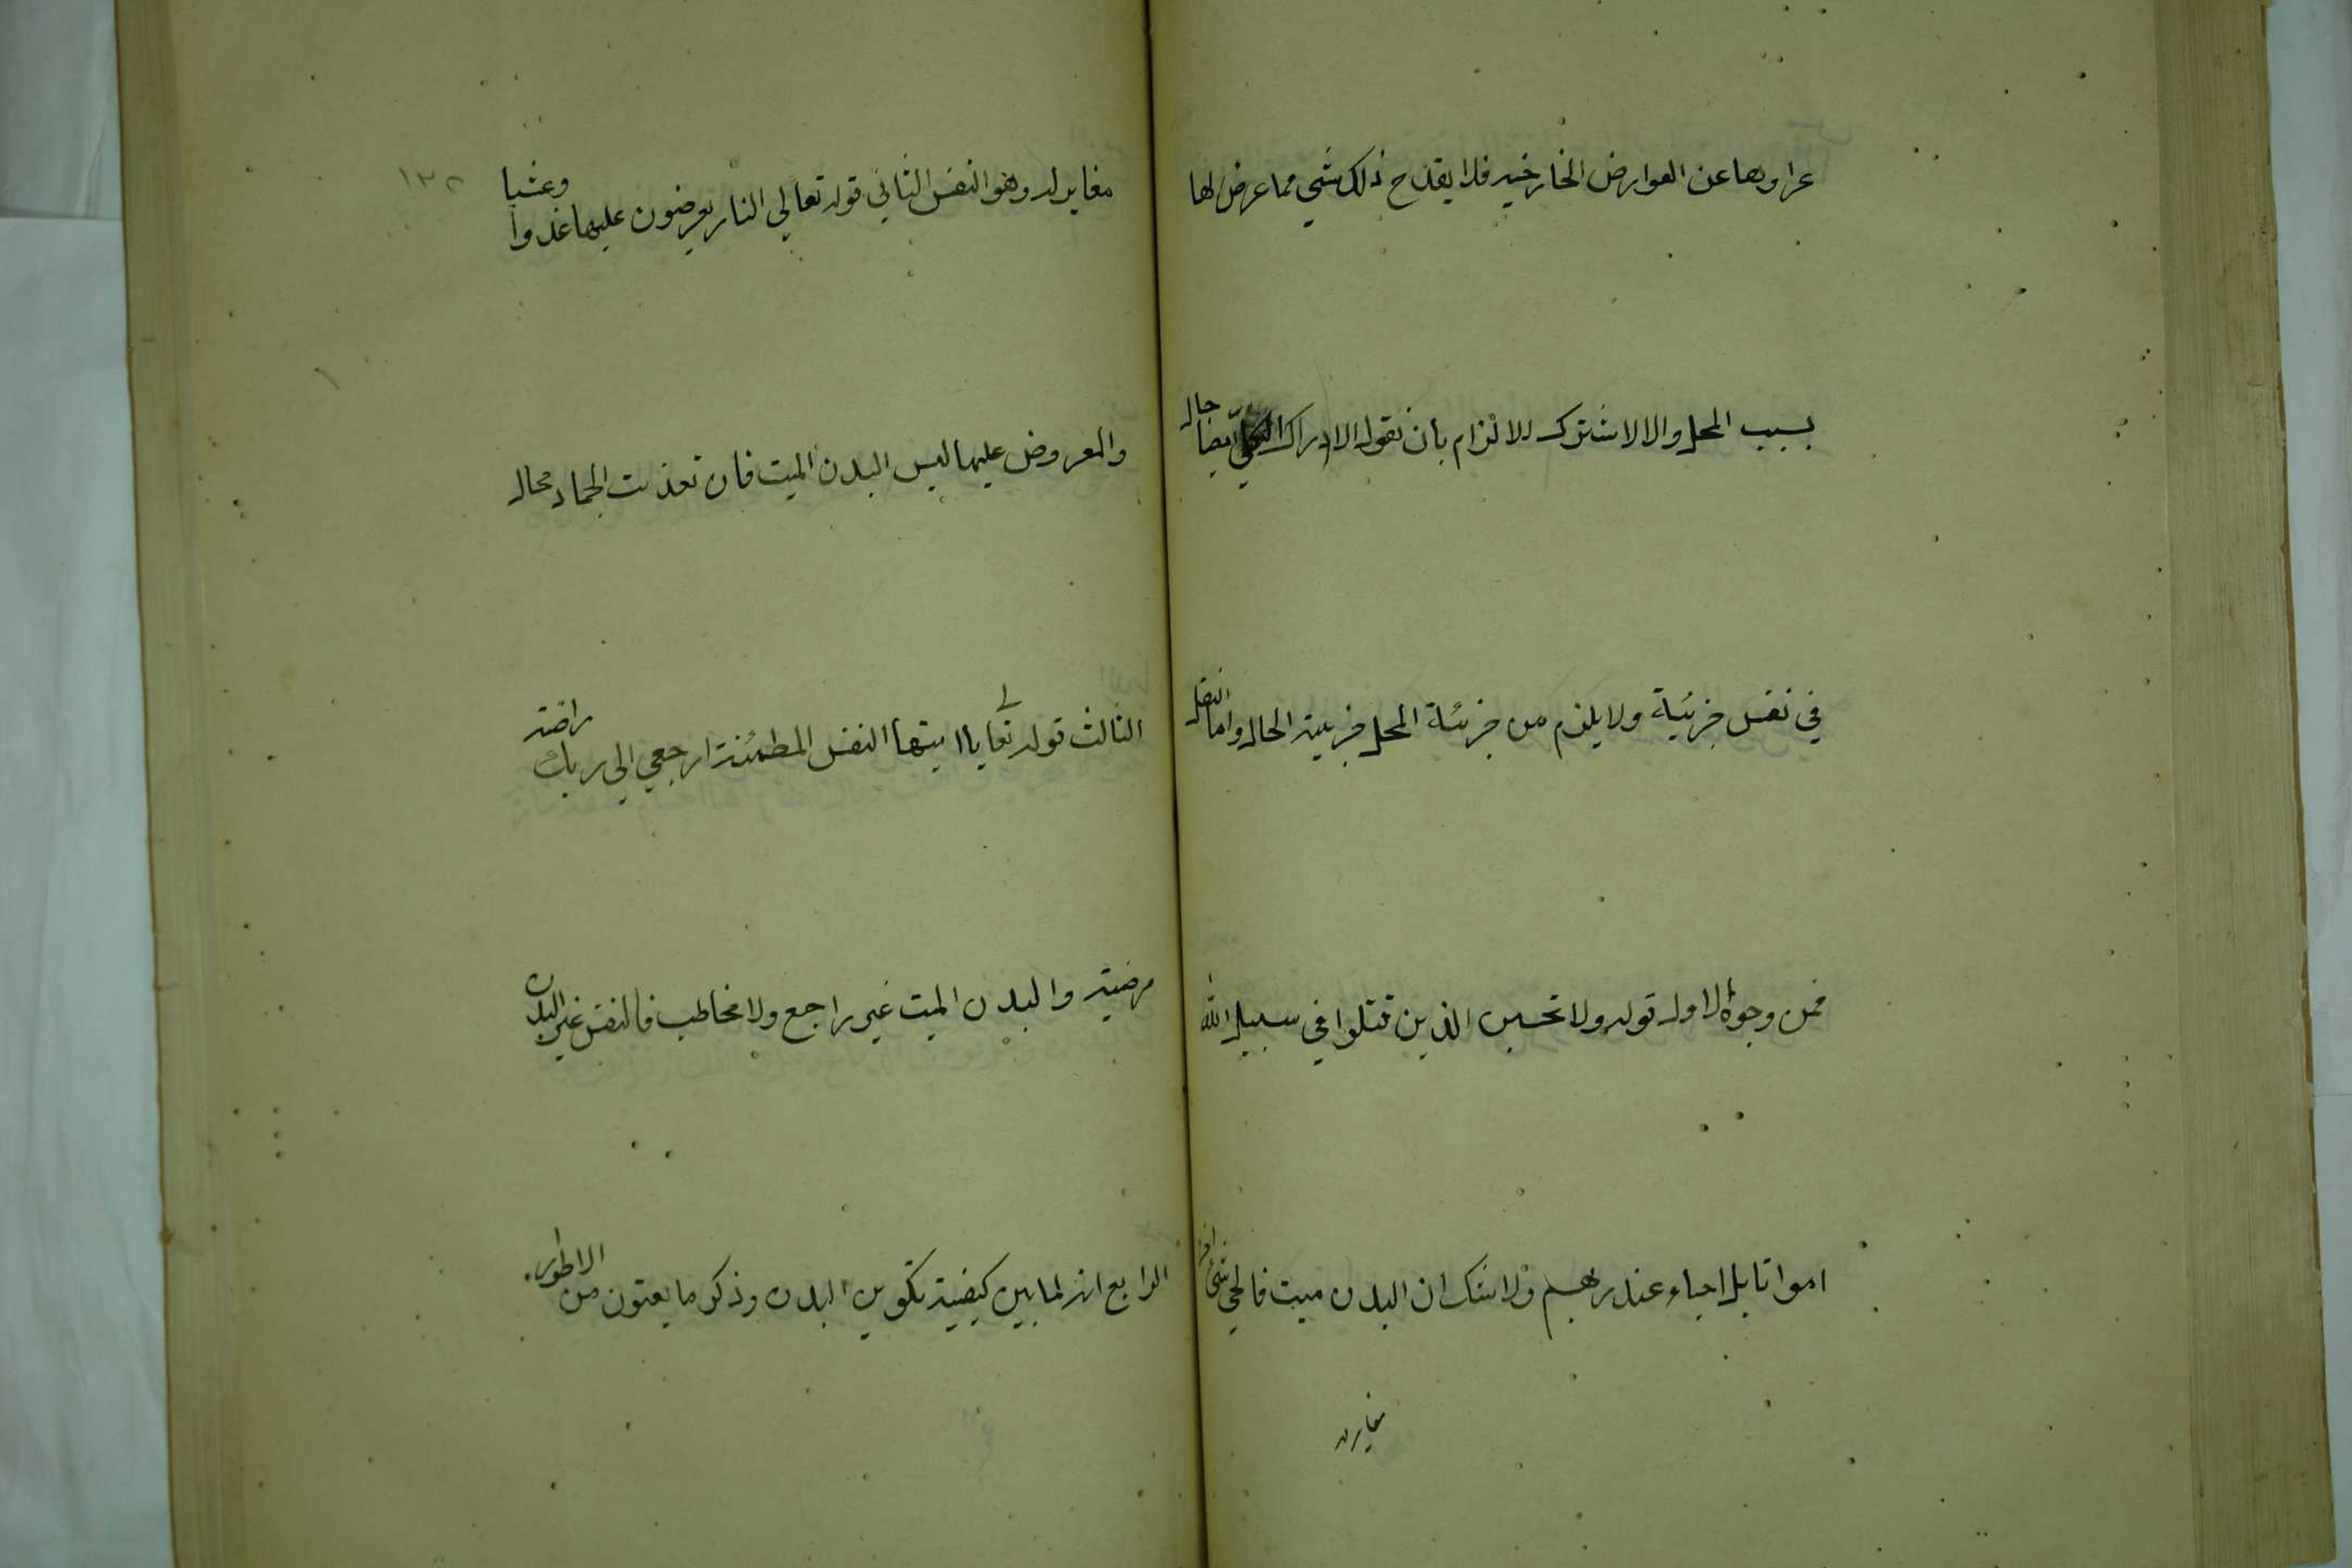 عراوها عن العوارض الخارخيه فلا يقدح ذلك شي مما عرض لها
بسبب المحل والا لاشترك للالزام بان نقول الادراك الكلي ايضا حال
في نفس جزئية ولا يلزم من جزئية المحل جزئية الحال واما النقل
فمن وجوه الاول قوله ولا تحسبن الذين قتلوا في سبيل الله
امواتا بل احياء عند ربهم ولا شك ان البدن ميت فالحي شئ اخر
مغاير له
مغاير له وهو النفس الثاني قوله تعالي النار يعرضون عليها غدوا وعشيا
١٣٢
والمعروض عليها ليس البدن الميت فان تعذيب الجماد محال
الثالث قوله تعا يا ايتها النفس المطمئنة ارجعي الي ربك راضية
مرضية والبدن الميت غير راجع ولا مخاطب فالنفس غير البدن
الرابع انه لما بين كيفية تكوين البدن وذكر ما يعتون من الاطوار